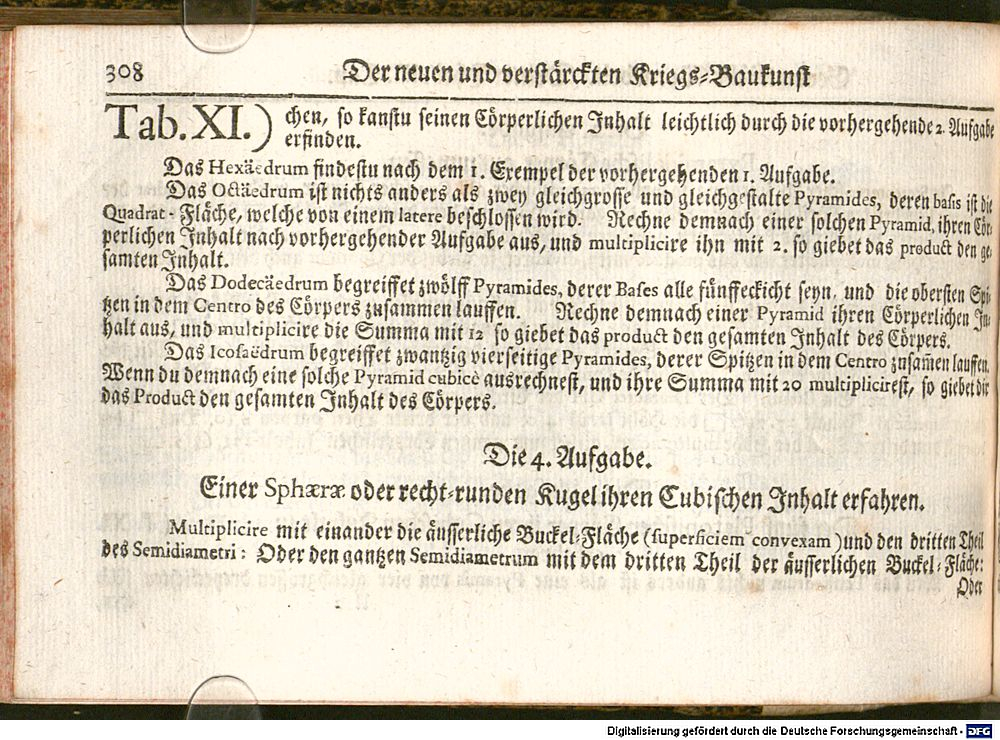 308 Der neuen und verstärckten Kriegs-Baukunst
Tab. XI.) chen, so kanstu seinen Cörperlichen Inhalt leichtlich durch die vorhergehende 2. Aufgabe
erfinden.
Das Hexäedrum findestu nach dem 1. Exempel der vorhergehenden 1. Aufgabe.
Das Octäedrum ist nichts anders als zwey gleichgrosse und gleichgestalte Pyramides, deren basis ist die
Quadrat-Fläche, welche von einem latere beschlossen wird. Rechne demnach einer solchen Pyramid, ihren Cör-
perlichen Inhalt nach vorhergehender Aufgabe aus, und multiplicire ihn mit 2. so giebet das product den ge-
samten Inhalt.
Das Dodecäedrum begreiffet zwölff Pyramides, derer Bases alle fünffeckicht seyn, und die obersten Spi-
tzen in dem Centro des Cörpers zusammen lauffen. Rechne demnach einer Pyramid ihren Cörperlichen In-
halt aus, und multiplicire die Summa mit 12 so giebet das product den gesamten Inhalt des Cörpers.
Das Icosaëdrum begreiffet zwantzig vierseitige Pyramides, derer Spitzen in dem Centro zusam̄en lauffen.
Wenn du demnach eine solche Pyramid cubicè ausrechnest, und ihre Summa mit 20 multiplicirest, so giebet dir
das Product den gesamten Inhalt des Cörpers.
Die 4. Aufgabe.
Einer Sphæræ oder recht-runden Kugel ihren Cubischen Inhalt erfahren.
Multiplicire mit einander die äusserliche Buckel-Fläche (superficiem convexam) und den dritten Theil
des Semidiametri: Oder den gantzen Semidiametrum mit dem dritten Theil der äusserlichen Buckel-Fläche:
Oder
Digitalisierung gefördert durch die Deutsche Forschungsgemeinschaft - DFG